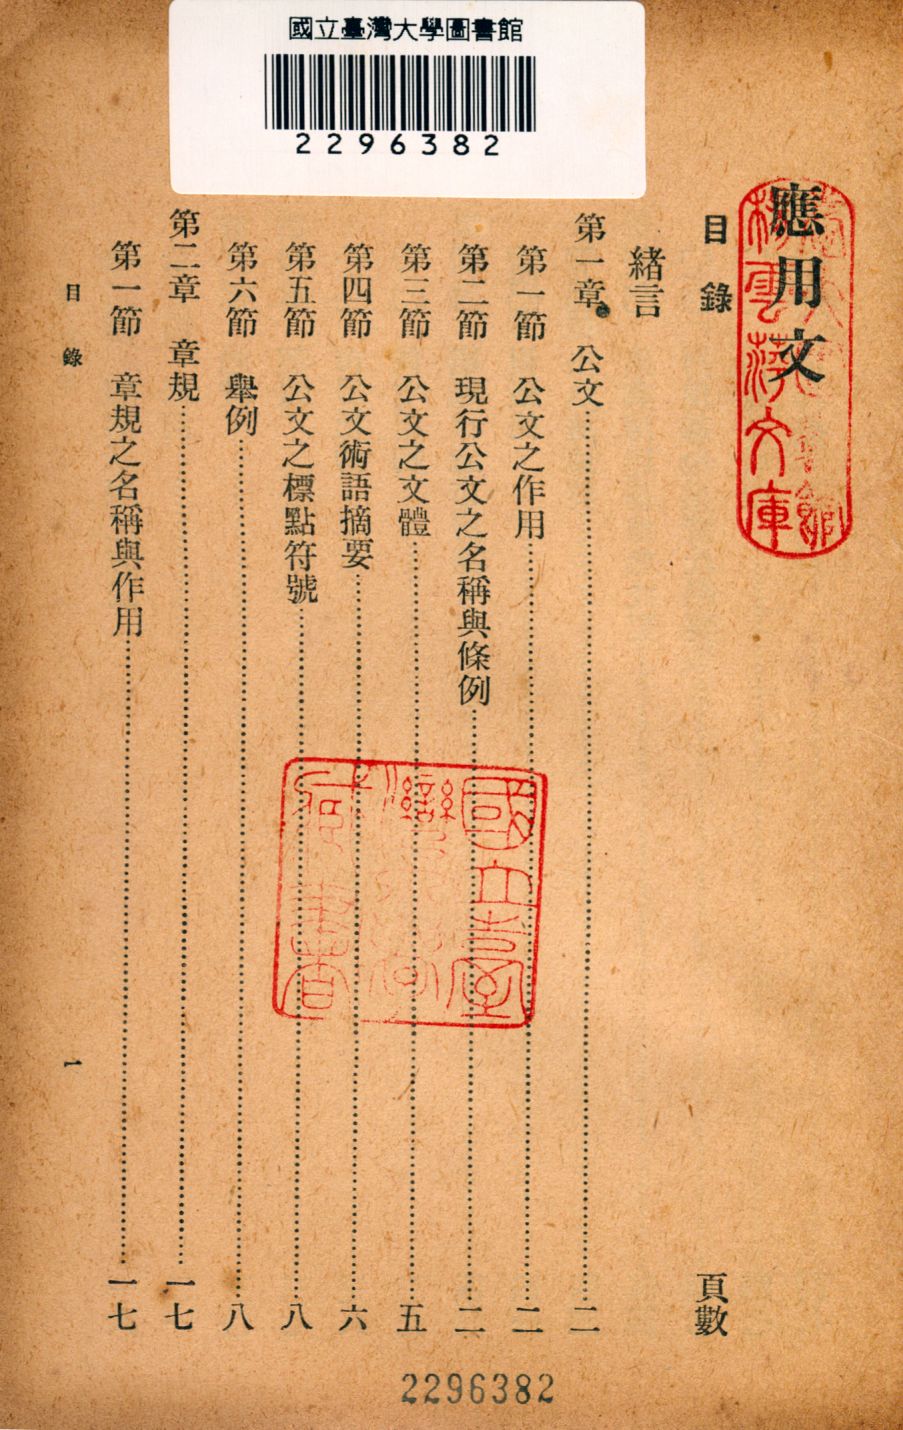 國立臺灣大學圖書館
2296382
應用文
目錄
頁數
緒言
第一章 公文……二
第一節 公文之作用……二
第二節 現行公文之名稱與條例……二
第三節 公文之文體……五
第四節 公文術語摘要……六
第五節 公文之標點符號……八
第六節 舉例……八
第二章 章規……一七
第一節 章規之名稱與作用……一七
目錄
一
2296382